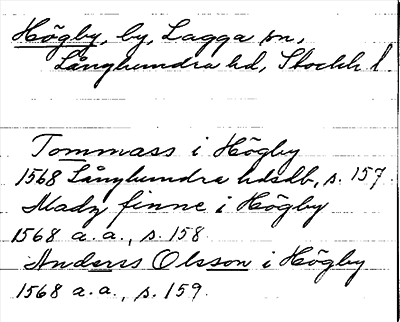 Högby, by, Lagga sn,
Långhundra hd, Stockh l
Tommass i Högby
1568 Långhundra hdsdb, s. 157.
Madz finne i Högby
1568 a.a., s. 158.
Anderss Olsson i Högby
1568 a.a., s. 159.